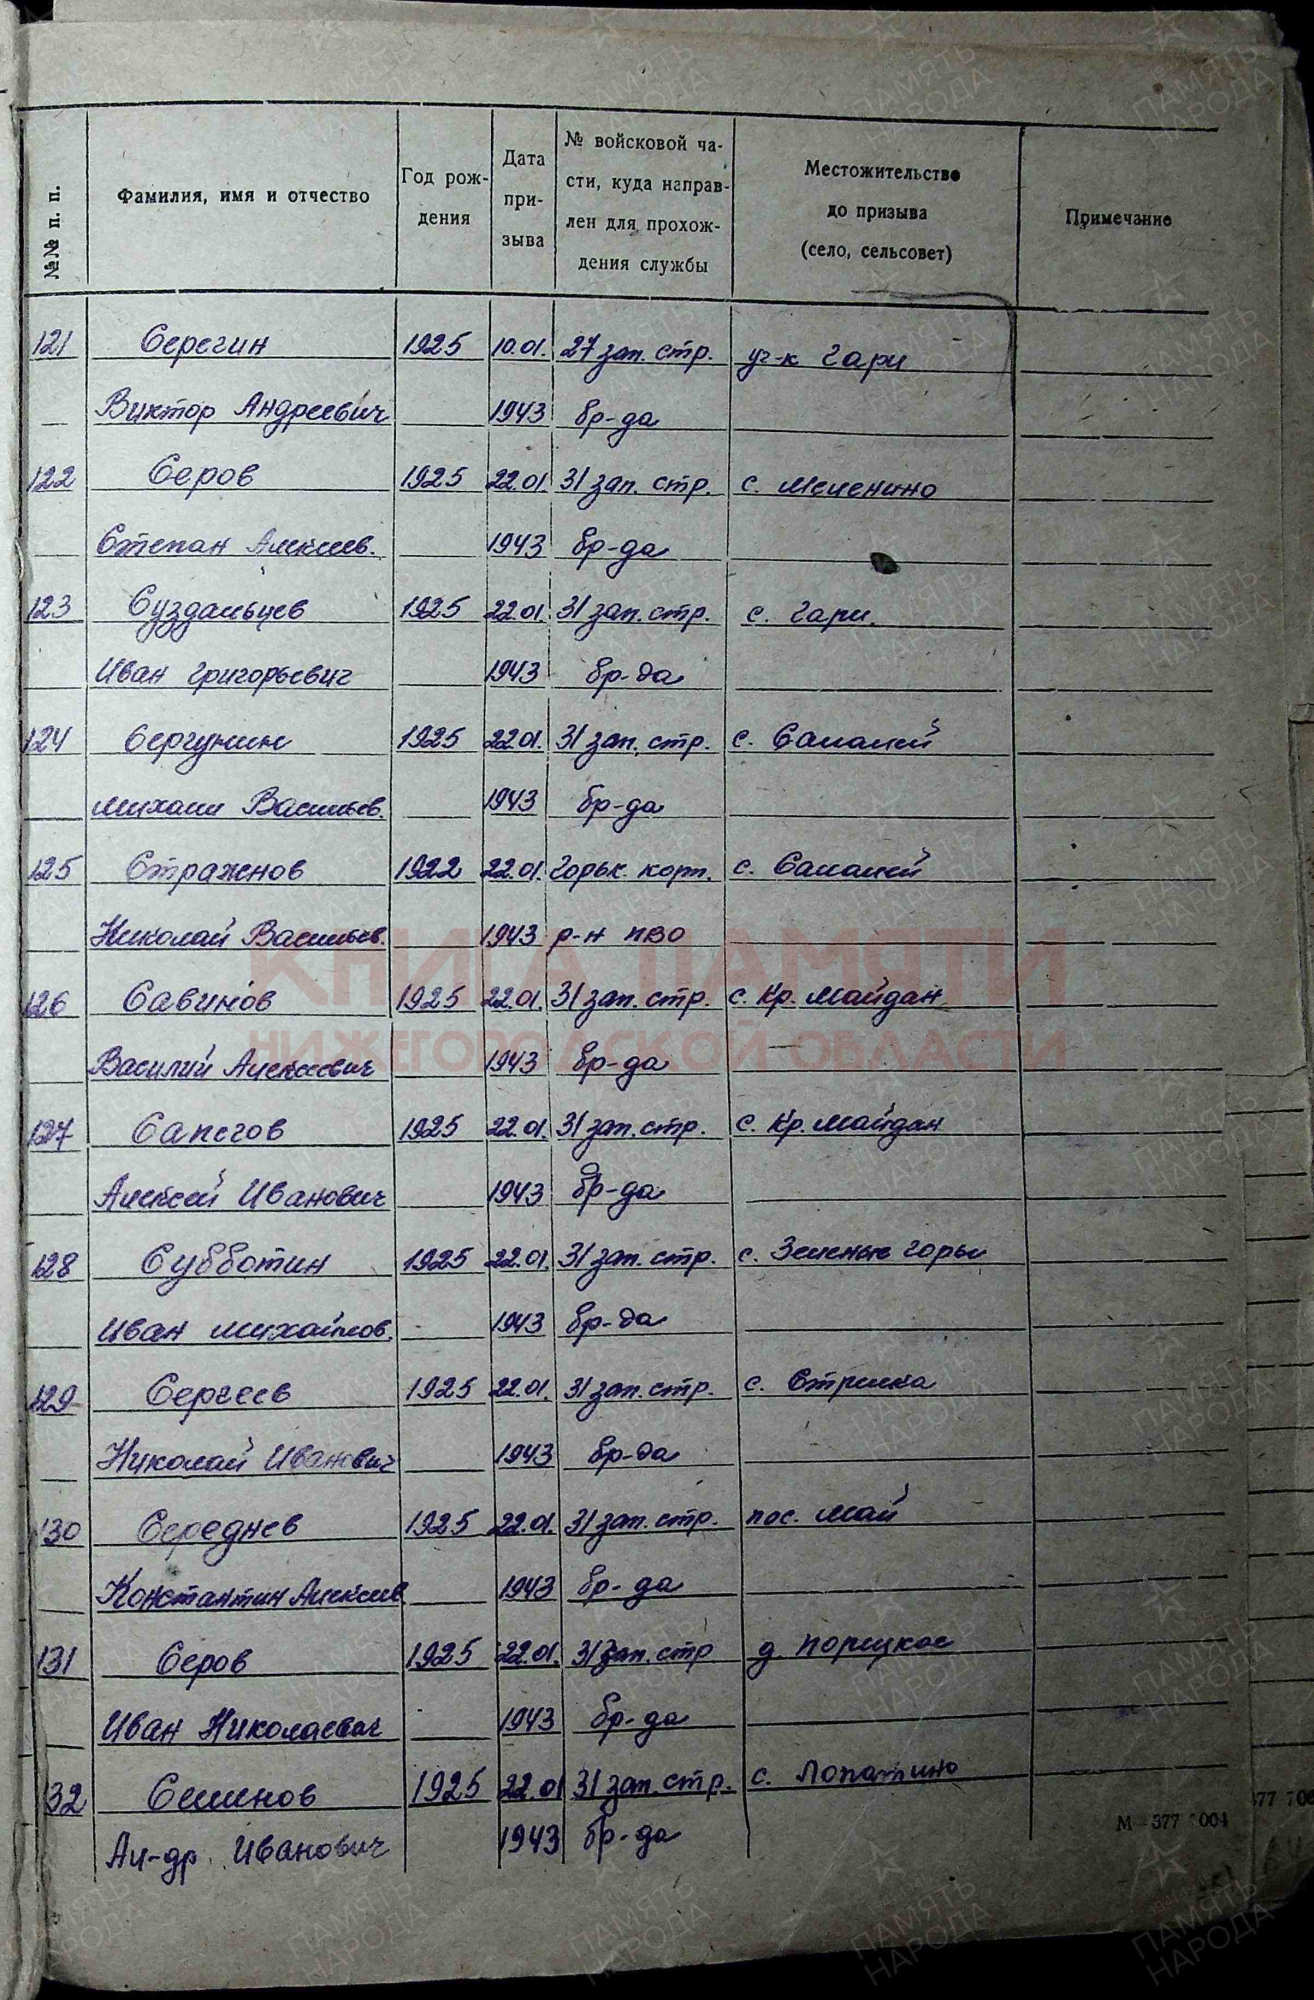 №№ п. п.
Фамилия, имя и отчество
Год рож-
дения
Дата
при-
зыва
№ войсковой ча-
сти, куда направ-
лен для прохож-
дения службы
Местожительство
до призыва
(село, сельсовет)
Примечание
121 Серегин 1925 10.01. 27 зап. стр. уч-к Гари
Виктор Андреевич 1943 бр-да
122 Серов 1925 22.01. 31 зап. стр. с.
Степан Алексеев. 1943 бр-да
123 Суздальцев 1925 22.01. 31 зап. стр. с. Гари.
Иван Григорьевич 1943 бр-да
124 Сергунин 1925 22.01. 31 зап. стр. с. Саламей
Михаил Васильев. 1943 бр-да
125 Страженов 1922 22.01. Горьк. корп. с. Саламей
Николай Васильев. 1943 р-н ПВО
126 Савинов 1925 22.01. 31 зап. стр. с. Кр. Майдан
Василий Алексеевич 1943 бр-да
127 Сапегов 1925 22.01. 31 зап. стр. с. Кр. Майдан
Алексей Иванович 1943 бр-да
128 Субботин 1925 22.01. 31 зап. стр. с. Зеленые Горы
Иван Михайлов. 1943 бр-да
129 Сергеев 1925 22.01. 31 зап. стр. с. Стрелка
Николай Иванович 1943 бр-да
130 Середнев 1925 22.01. 31 зап. стр. пос. Май
Константин Алексеев. 1943 бр-да
131 Серов 1925 22.01. 31 зап. стр д. Порецкое
Иван Николаевич 1943 бр-да
132 Семенов 1925 22.01 31 зап. стр. с. Лопатино
Ал-др. Иванович 1943 бр-да
КНИГА ПАМЯТИ
НИЖЕГОРОДСКОЙ ОБЛАСТИ
ПАМЯТЬ
НАРОДА